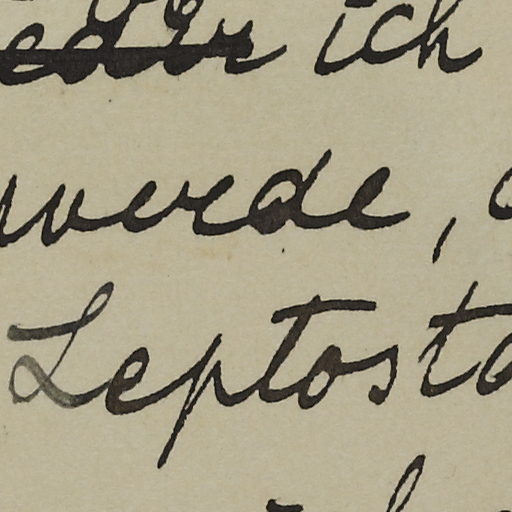 ich
werde,
Leptosta